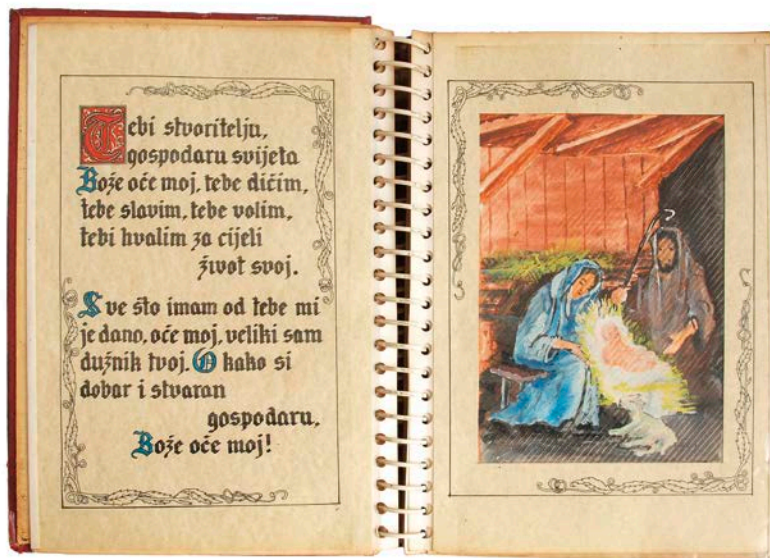 Tebi stvoritelju,
gospodaru svijeta
Bože oče moj, tebe dičim,
tebe slavim, tebe volim,
tebi hvalim za cijeli
život svoj.
Sve što imam od tebe mi
je dano, oče moj, veliki sam
dužnik tvoj. O kako si
dobar i stvaran
gospodaru,
Bože oče moj!